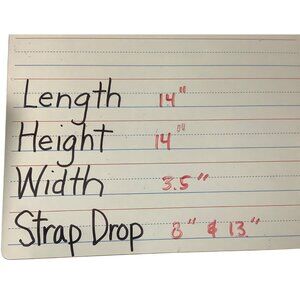 Length 14"
Height 14"
Width 3.5"
Strap Drop 8" & 13"